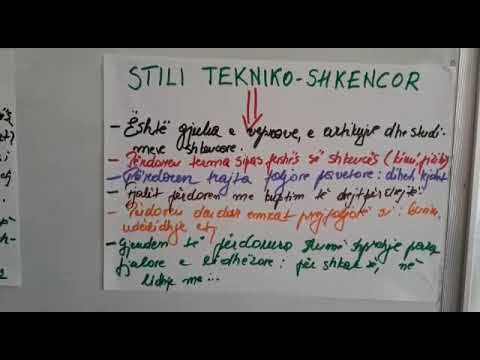 STILI TEKNIKO-SHKENCOR
- Është gjuha e veprave, e artikujve dhe studi-
meve shkencore.
- Përdoren terma sipas fushës së shkencës (kimi, fizikë)
- Përdoren trajta foljore pavetore: dihet, kjuhet
- Fjalit përdoren me kuptim të drejtpërdrejtë.
- Përdoren dendur emrat prejfoljorë si: burim,
ndërlidhje etj
- Gjenden të përdorura shumë shprehje para
fjalore e lidhëzore: për shkak të, në
lidhje me...